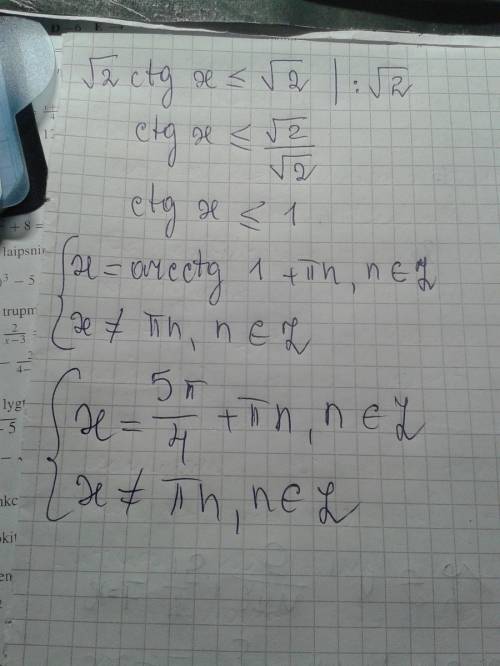 √2 ctg x ≤ √2 | : √2
ctg x ≤ √2/√2
ctg x ≤ 1
{ x = arcctg 1 + πn, n ∈ Z
x ≠ πn, n ∈ Z
{ x = 5π/4 + πn, n ∈ Z
x ≠ πn, n ∈ Z
+ 8 =
laipsni
trupm
2/x-3
lygt